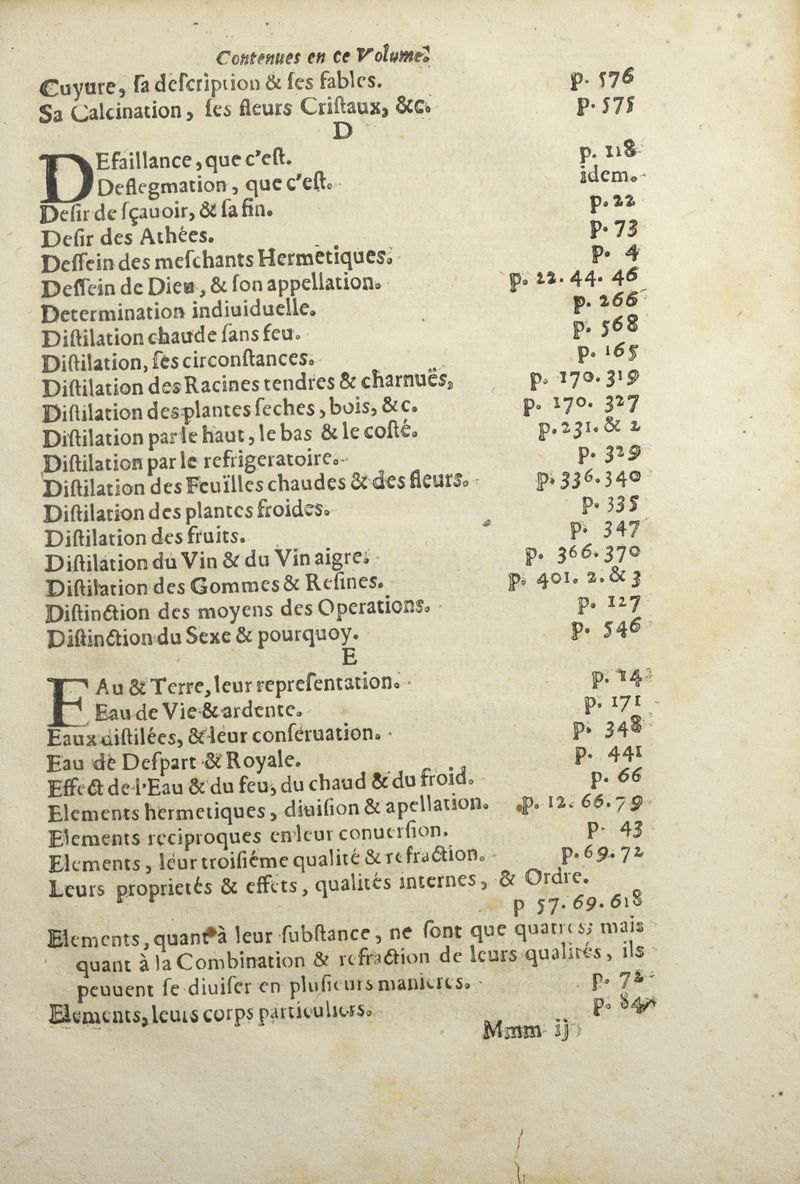 Contenues en ce Volume.
Cuyure, ſa deſcription & ſes fables. p. 576
Sa Calcination, ſes fleurs Criſtaux, &c. p. 575
D
DEfaillance, que c'eſt. p. 118
Deflegmation, que c'eſt. idem.
Deſir de ſçauoir, & ſa fin. p. 22
Deſir des Athées. p. 73
Deſſein des meſchants Hermetiques. p. 4
Deſſein de Dieu, & ſon appellation. p. 22. 44. 46
Determination indiuiduelle. p. 266
Diſtilation chaude ſans feu. p. 568
Diſtilation, ſes circonſtances. p. 165
Diſtilation des Racines tendres & charnuës, p. 170. 319
Diſtilation des plantes ſeches, bois, &c. p. 170. 327
Diſtilation par le haut, le bas & le coſté. p. 231. & 2
Diſtilation par le refrigeratoire. p. 329
Diſtilation des Feuïlles chaudes & des fleurs. p. 336. 340
Diſtilation des plantes froides. p. 335
Diſtilation des fruits. p. 347
Diſtilation du Vin & du Vinaigre. p. 366. 370
Diſtilation des Gommes & Reſines. p. 401. 2. & 3
Diſtinction des moyens des Operations. p. 127
Diſtinction du Sexe & pourquoy. p. 546
E
EAu & Terre, leur repreſentation. p. 14
Eau de Vie & ardente. p. 171
Eaux diſtilées, & leur conſéruation. p. 348
Eau de Deſpart & Royale. p. 441
Effect de l'Eau & du feu, du chaud & du froid. p. 66
Elements hermetiques, diuiſion & apellation. p. 12. 66. 79
Elements reciproques en leur conuerſion. p. 43
Elements, leur troiſiéme qualité & refraction. p. 69. 72
Leurs proprietés & effets, qualités internes, & Ordre.
p 57. 69. 618
Elements, quant à leur ſubſtance, ne ſont que quatres; mais
quant à la Combination & refraction de leurs qualités, ils
peuuent ſe diuiſer en pluſieurs manieres. p. 72
Elements, leurs corps particuliers. p. 84
Mmm ij